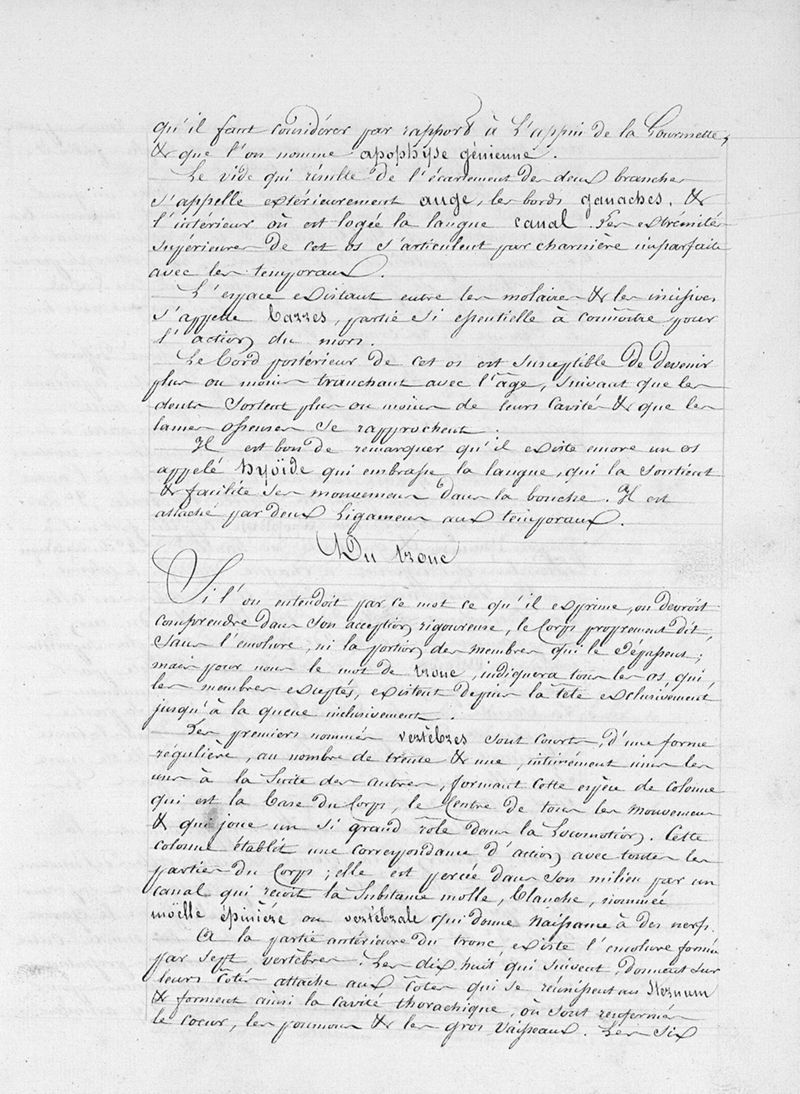 qu'il faut considérer par rapport à l'appui de la Gourmette,
& que l'on nomme apophyse génienne.
Le vide qui résulte de l'écartement de deux branches
s'appelle extérieurement auge, les bords ganaches, &
l'intérieur où est logée la langue canal. Les extrémités
supérieures de cet os s'articulent par charnière imparfaite
avec les temporaux.
L'espace existant entre les molaires & les incisives
s'appelle Barres, partie si essentielle à connoître pour
l'action du mors.
Le bord postérieur de cet os est susceptible de devenir
plus ou moins tranchant avec l'âge, suivant que les
dents sortent plus ou moins de leurs cavités & que les
lames osseuses se rapprochent.
Il est bon de remarquer qu'il existe encore un os
appelé hyoïde qui embrasse la langue, qui la soutient
& facilite ses mouvemens dans la bouche. Il est
attaché par deux ligamens aux temporaux.
Du tronc
Si l'on entendoit par ce mot ce qu'il exprime, on devroit
comprendre dans son acception rigoureuse, le Corps proprement dit,
sans l'encolure, ni la portion des membres qui le dépassent;
mais pour nous le mot de tronc, indiquera tous les os, qui,
les membres exceptés, existent depuis la tête exclusivement
jusqu'à la queue inclusivement.
Les premiers nommés vertèbres sont courts, d'une forme
régulière, au nombre de trente & une, intimément unis les
uns à la suite des autres, formant cette espèce de colonne
qui est la base du Corps, le Centre de tous les mouvemens
& qui joue un si grand rôle dans la Locomotion. Cette
colonne établit une correspondance d'action avec toutes les
parties du Corps; elle est percée dans son milieu par un
canal qui reçoit la substance molle, blanche, nommée
moëlle épinière ou vertébrale qui donne naissance à des nerfs.
A la partie antérieure du tronc existe l'encolure formée
par sept vertèbres. Les dix huit qui suivent, donnent sur
leurs côtés attache aux côtes qui se réunissent au sternum
& forment ainsi la cavité thorachique, où sont renfermés
le coeur, les poumons & les gros vaisseaux. Les six